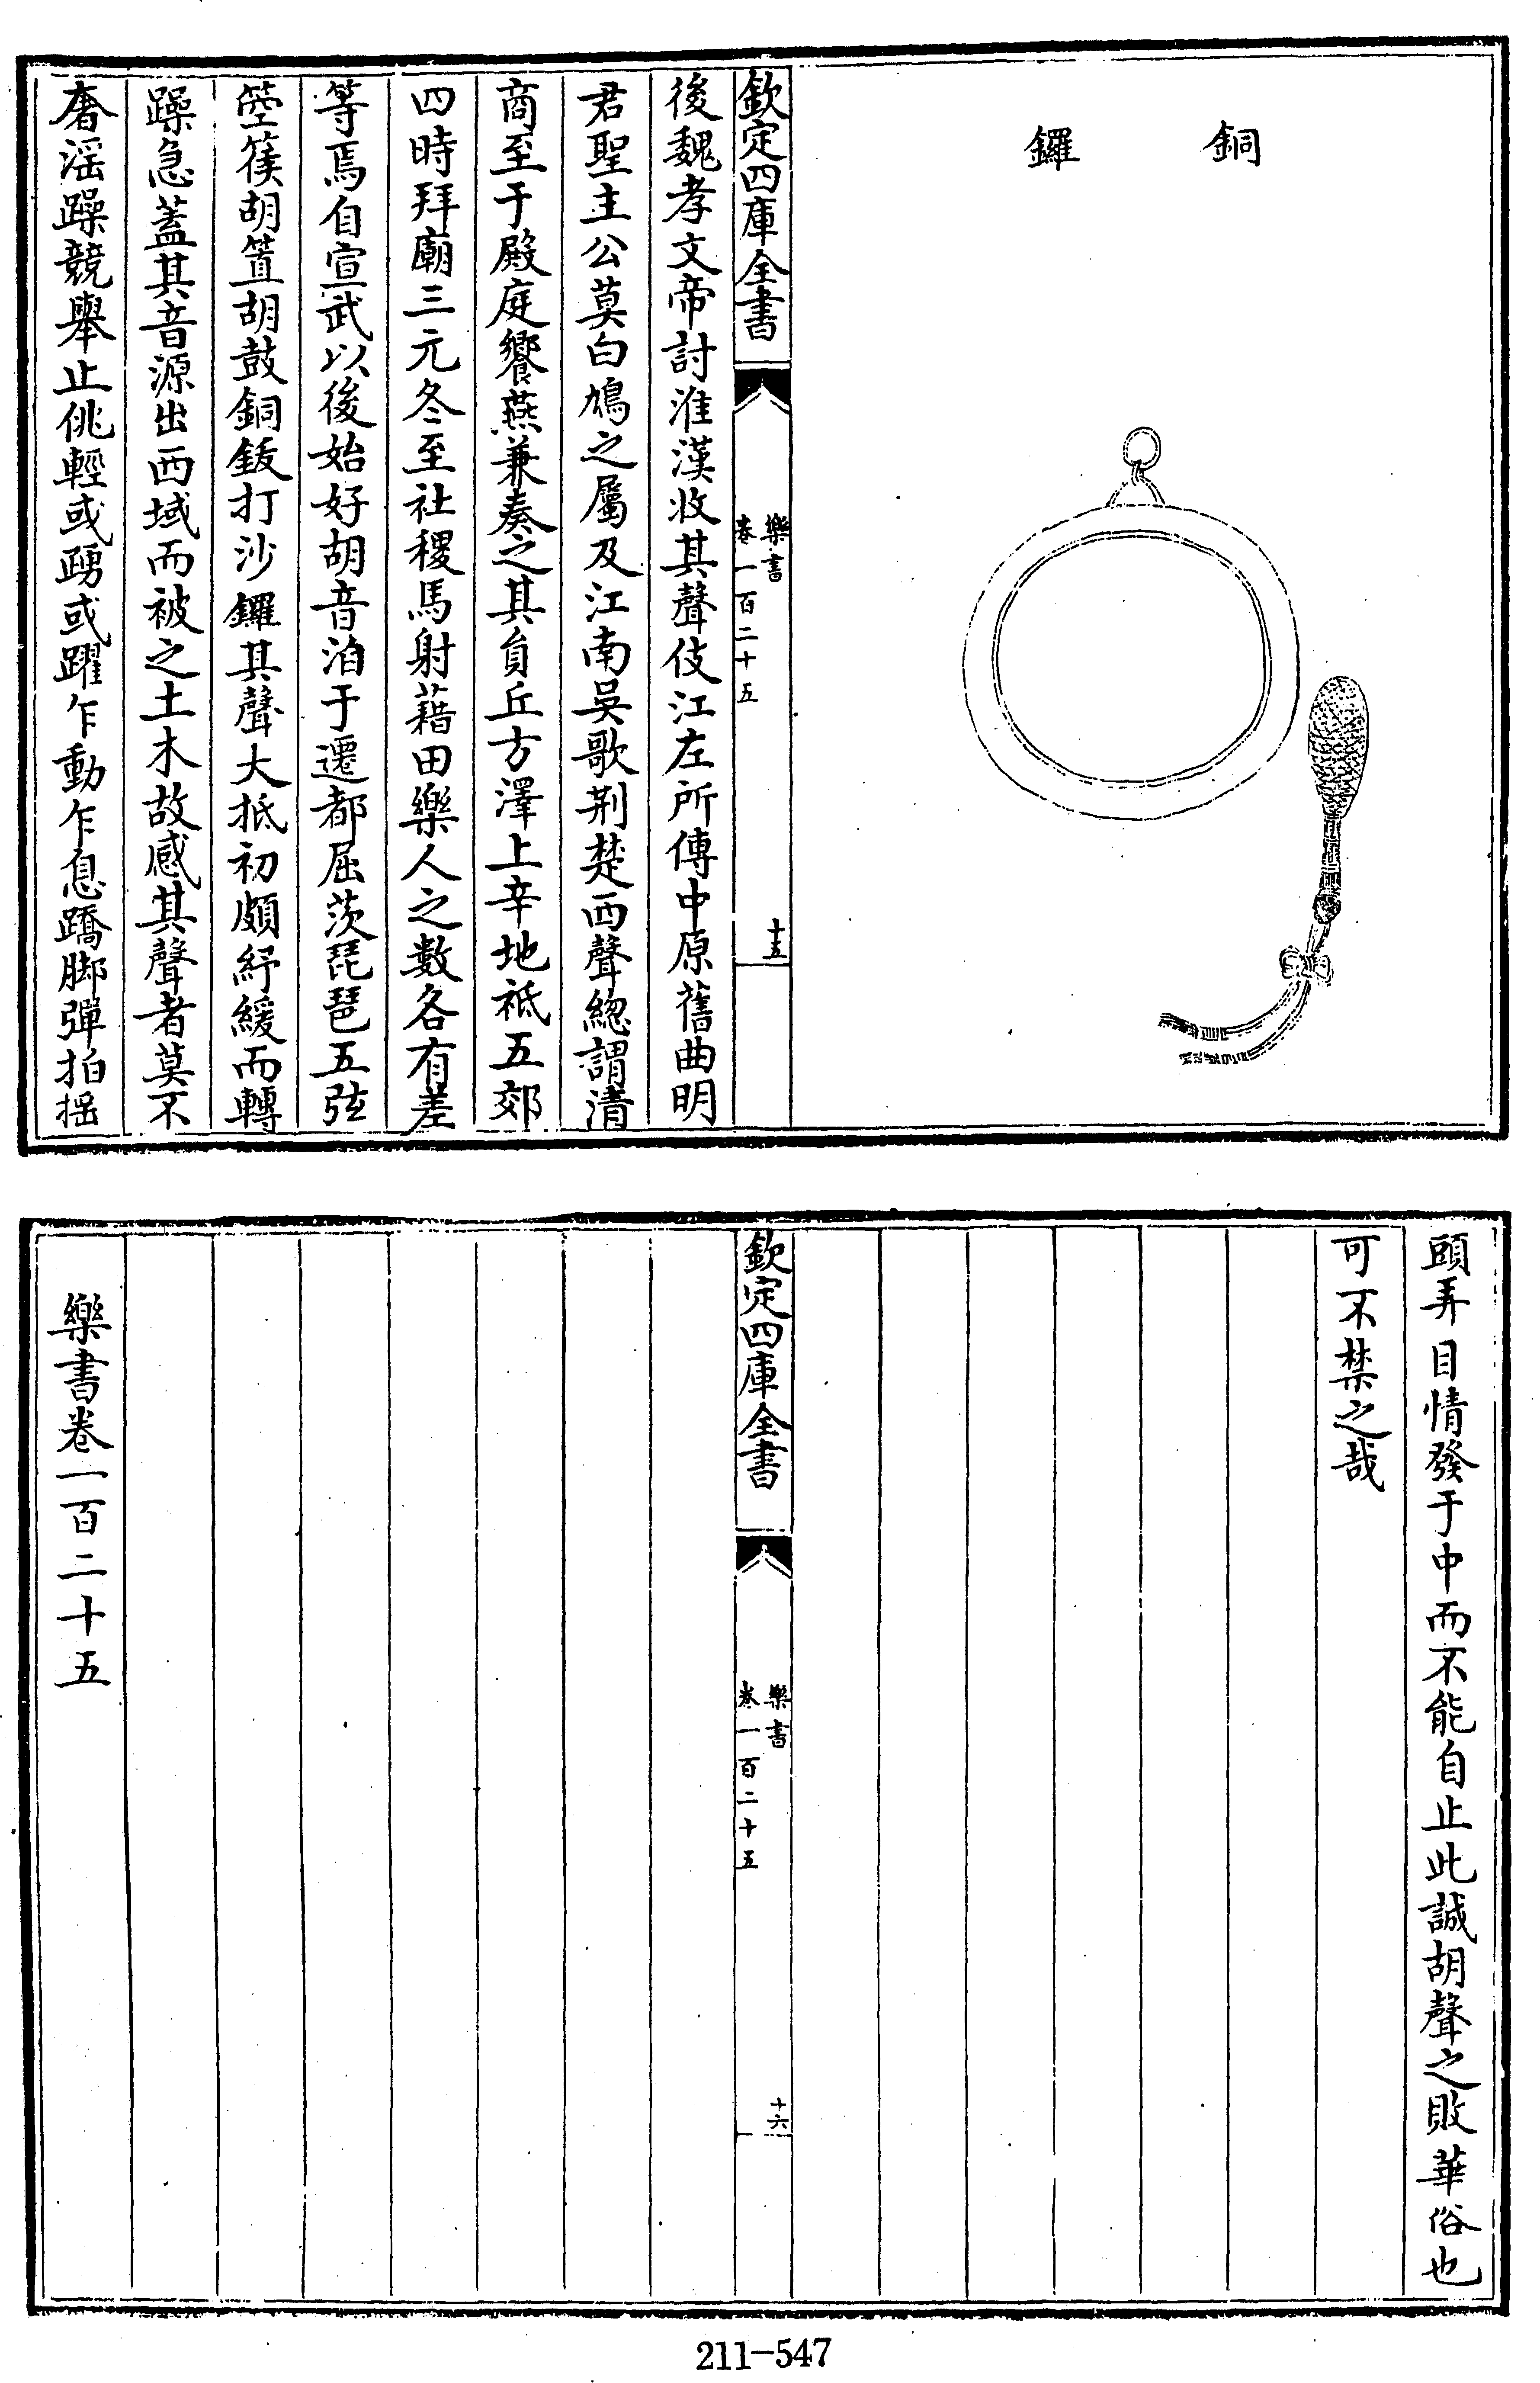 銅　鑼
欽定四庫全書
樂書
卷一百二十五
十五
後魏孝文帝討淮漢收其聲伎江左所傳中原舊曲明
君聖主公莫白鳩之屬及江南吳歌荆楚西聲緫謂清
商至于殿庭饗燕兼奏之其負丘方澤上辛地祗五郊
四時拜廟三元冬至社稷馬射藉田樂人之數各有差
等焉自宣武以後始好胡音洎于遷都屈茨琵琶五弦
箜篌胡䈛胡鼓銅鈸打沙鑼其聲大抵初頗紓緩而轉
躁急蓋其音源出西域而被之土木故感其聲者莫不
奢淫躁競舉止佻輕或踴或躍乍動乍息蹻脚彈拍搖
頭弄目情發于中而不能自止此誠胡聲之敗華俗也
可不禁之哉
欽定四庫全書
樂書
卷一百二十五
十六
樂書卷一百二十五
211-547